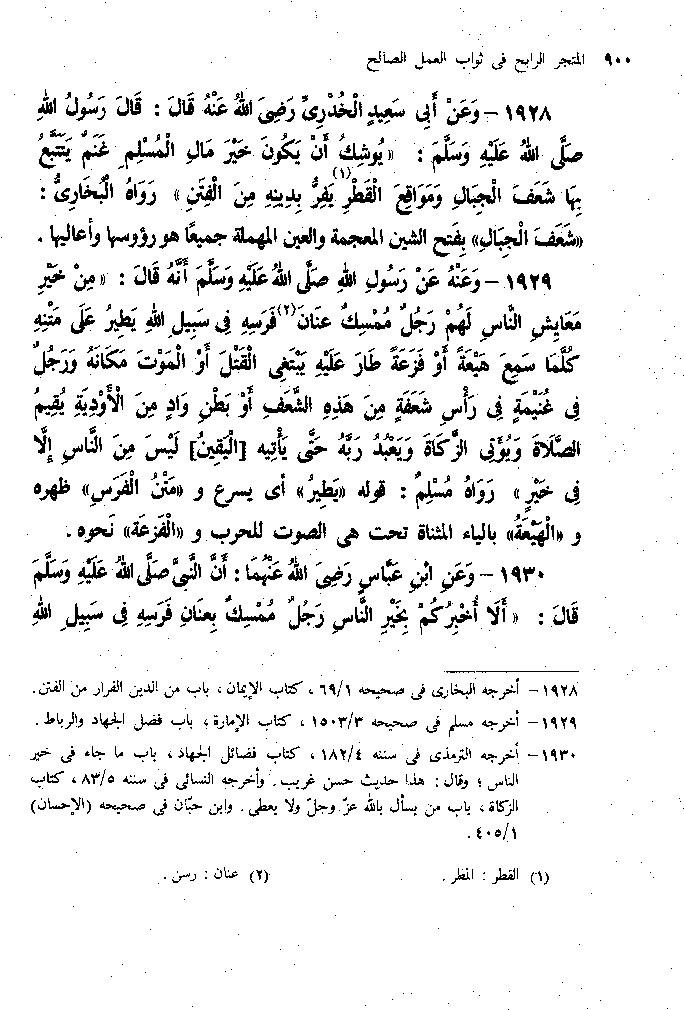 ٩٠٠ المتجر الرابح فى ثواب العمل الصالح
١٩٢٨ – وَعَنْ أَبِي سَعِيدٍ الْخُدْرِىِّ رَضِىَ اللهُ عَنْهُ قَالَ : قَالَ رَسُولُ اللهِ
صَلَّى اللهُ عَلَيْهِ وَسَلَّمَ : « يُوشِكُ أَنْ يَكُونَ خَيْرَ مَالِ الْمُسْلِمِ غَنَمٌ يَتَتَبَّعُ
بِهَا شَعَفَ الْجِبَالِ وَمَوَاقِعَ الْقَطْرِ(١) يَفِرُّ بِدِينِهِ مِنَ الْفِتَنِ » رَوَاهُ الْبُخَارِىُّ :
«شَعَفَ الْجِبَالِ» بِفَتح الشين المعجمة والعين المهملة جميعًا هو رؤوسها وأعاليها .
١٩٢٩ – وَعَنْهُ عَنْ رَسُولِ اللهِ صَلَّى اللهُ عَلَيْهِ وَسَلَّمَ أَنَّهُ قَالَ : «مِنْ خَيْرِ
مَعَايِشِ النَّاسِ لَهُمْ رَجُلٌ مُمْسِكٌ عنَانَ(٢) فَرَسِهِ فِى سَبِيلِ اللهِ يَطِيرُ عَلَى مَتْنِهِ
كُلَّمَا سَمِعَ هَيْعَةً أَوْ فَزعَةً طَارَ عَلَيْهِ يَبْتَغِى الْقَتْلَ أَوْ الْمَوْتَ مَكَانَهُ وَرَجُلٌ
فِى غُنَيْمَةٍ فِى رَأْسِ شَعَفَةٍ مِنَ هَذِهِ الشَّعَفِ أَوْ بَطْنِ وَادٍ مِنَ الْأَوْدِيَةِ يُقِيمُ
الصَّلَاةَ وَيُؤتِى الزَّكَاةَ وَيَعْبُدُ رَبَّهُ حَتَّى يَأْتِيه [الْيَقِينُ] لَيْسَ مِنَ النَّاسِ إِلَّا
فِى خَيْرٍ » رَوَاهُ مُسْلِمٌ : قوله «يَطِيرُ» أى يسرع و «مَتْنُ الْفَرَسِ» ظهره
و «الْهَيْعَةُ» بالياء المثناة تحت هى الصوت للحرب و «الْفَزعَة» نَحوه .
١٩٣٠ – وَعَنِ ابْنِ عَبَّاسٍ رَضِىَ اللهُ عَنْهُمَا : أَنَّ النَّبِىَّ صَلَّى اللهُ عَلَيْهِ وَسَلَّمَ
قَالَ : « أَلَا أُخْبِرُكُمْ بِخَيْرِ النَّاسِ رَجُلٌ مُمْسِكٌ بِعنَانِ فَرَسِهِ فِى سَبِيلِ اللهِ
١٩٢٨ – أخرجه البخارى فى صحيحه ٦٩/١ ، كتاب الإيمان ، باب من الدين الفرار من الفتن .
١٩٢٩ – أخرجه مسلم فى صحيحه ١٥٠٣/٣ ، كتاب الإمارة ، باب فضل الجهاد والرباط .
١٩٣٠ – أخرجه الترمذى فى سننه ١٨٢/٤ ، كتاب فضائل الجهاد ، باب ما جاء فى خير
الناس ؛ وقال : هذا حديث حسن غريب . وأخرجه النسائى فى سننه ٨٣/٥ ، كتاب
الزكاة ، باب من يسأل بالله عزّ وجلّ ولا يعطى . وابن حبّان فى صحيحه (الإحسان)
٤٠٥/١ .
(١) القطر : المطر . (٢) عنان : رسن .